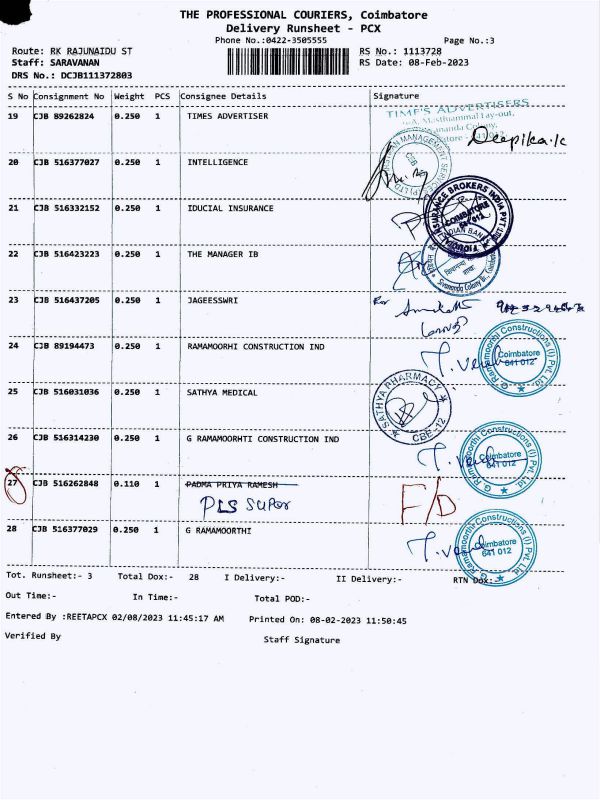 THE PROFESSIONAL COURIERS, Coimbatore
Delivery Runsheet - PCX
Phone No.:0422-3505555
Page No.:3
Route: RK RAJUNAIDU ST
RS No.: 1113728
Staff: SARAVANAN
RS Date: 08-Feb-2023
DRS No.: DCJB111372803
S No Consignment No Weight PCS Consignee Details Signature
19 CJB 89262824 0.250 1 TIMES ADVERTISER
TIME'S ADVERTISERS
Masthiammal Lay-out,
Deepika.k
20 CJB 516377027 0.250 1 INTELLIGENCE
21 CJB 516332152 0.250 1 IDUCIAL INSURANCE
INSURANCE BROKERS INDIA PVT LTD
COIMBATORE
641 012
22 CJB 516423223 0.250 1 THE MANAGER IB
INDIAN BANK
23 CJB 516437205 0.250 1 JAGEESSWRI
24 CJB 89194473 0.250 1 RAMAMOORHI CONSTRUCTION IND
G. Ramamoorthi Constructions (I) Pvt. Ltd.
Coimbatore
641 012
25 CJB 516031036 0.250 1 SATHYA MEDICAL
SATHYA PHARMACY
CBE-12
26 CJB 516314230 0.250 1 G RAMAMOORHTI CONSTRUCTION IND
G. Ramamoorthi Constructions (I) Pvt. Ltd.
Coimbatore
641 012
27 CJB 516262848 0.110 1 PADMA PRIYA RAMESH
F/D
28 CJB 516377029 0.250 1 G RAMAMOORTHI
G. Ramamoorthi Constructions (I) Pvt. Ltd.
Coimbatore
641 012
Tot. Runsheet:- 3 Total Dox:- 28 I Delivery:- II Delivery:- RTN Dox:-
Out Time:- In Time:- Total POD:-
Entered By :REETAPCX 02/08/2023 11:45:17 AM Printed On: 08-02-2023 11:50:45
Verified By Staff Signature